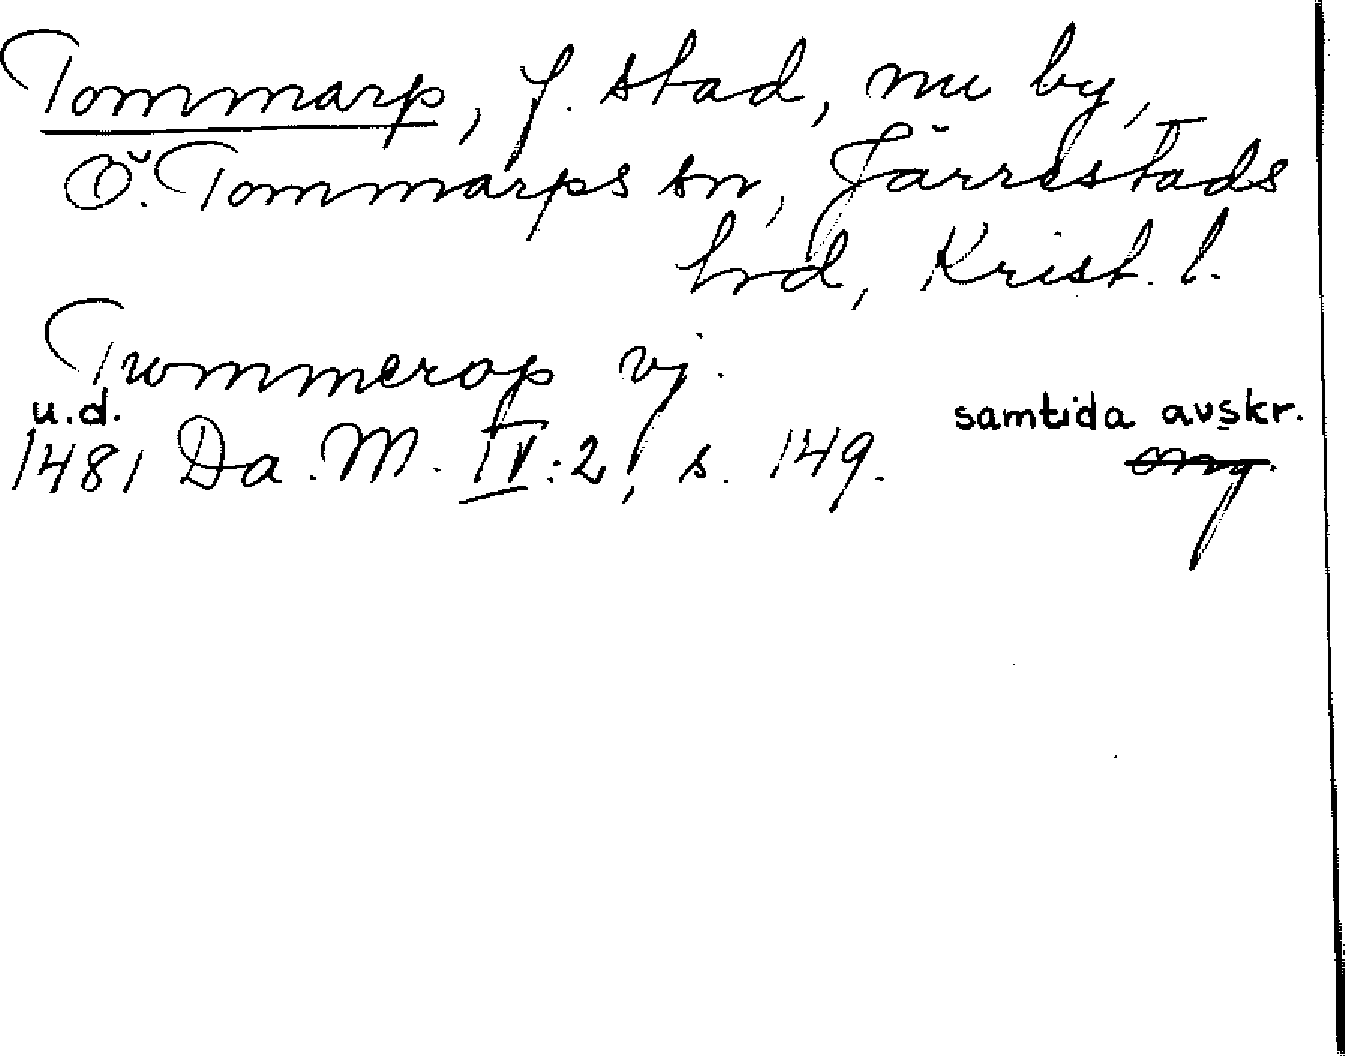 Tommarp, f. stad, nu by,
Ö. Tommarps sn, Järrestads
hrd, Krist. l.
Twmmerop vj.
u.d.
1481 Da. M. IV:2, s. 149. samtida avskr.